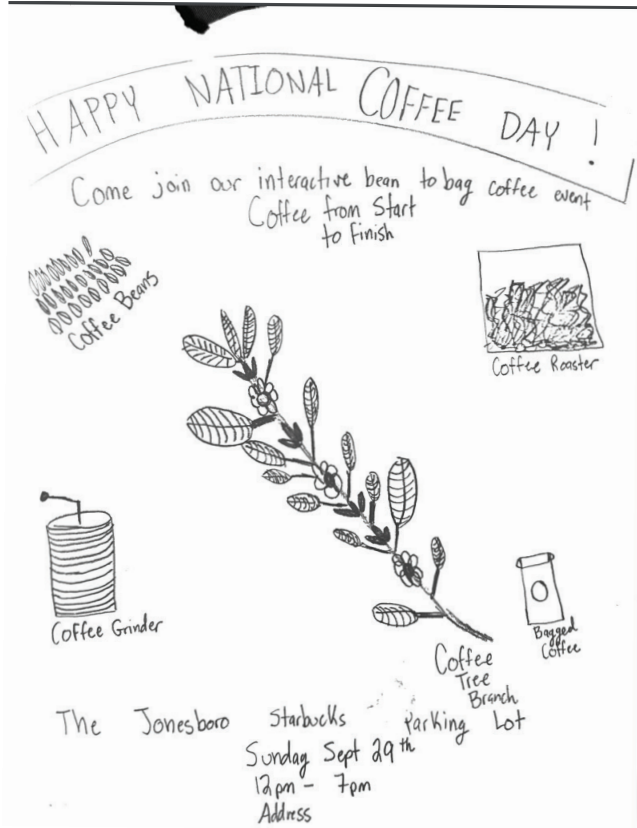 HAPPY NATIONAL COFFEE DAY!
Come join our interactive bean to bag coffee event
Coffee from Start
to Finish
Coffee Beans
Coffee Roaster
Coffee Grinder
Bagged
Coffee
Coffee
Tree
Branch
The Jonesboro Starbucks Parking Lot
Sunday Sept 29th
12pm - 7pm
Address